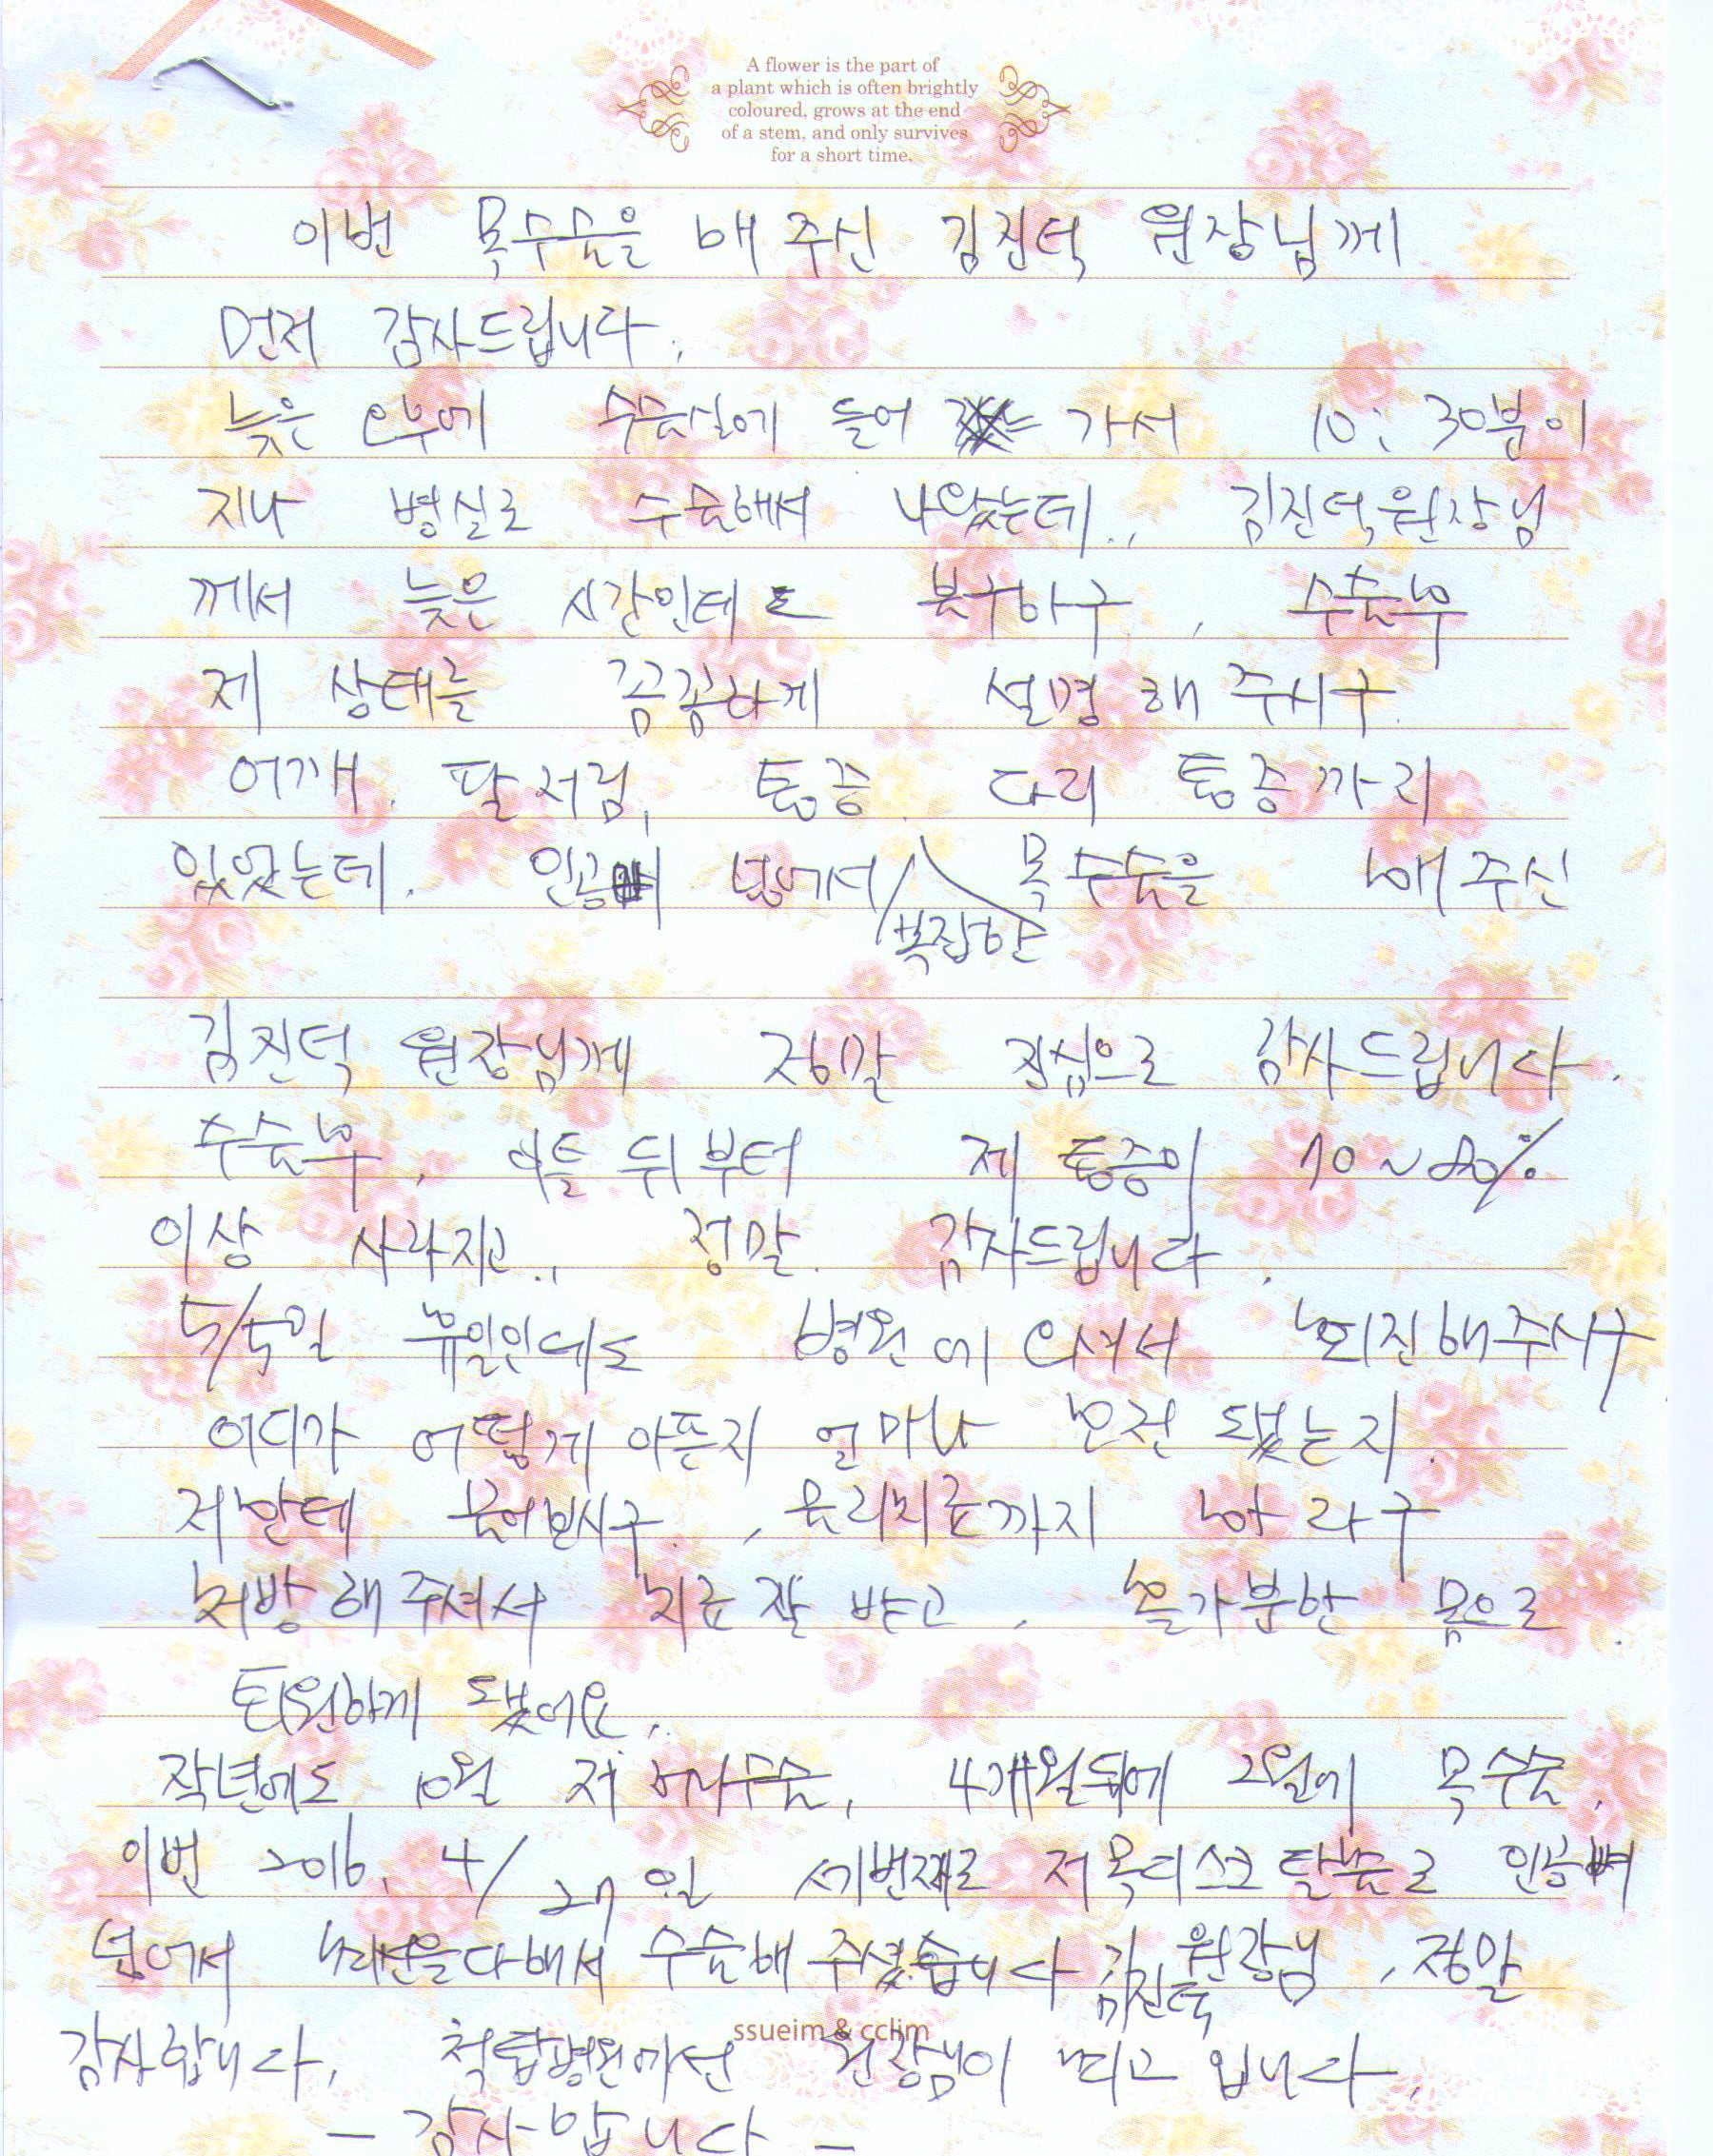 A flower is the part of
a plant which is often brightly
coloured, grows at the end
of a stem, and only survives
for a short time.
이번 목수술을 해 주신 김진덕 원장님께
먼저 감사드립니다.
늦은 오후에 수술실에 들어 가서 10:30분이
지나 병실로 수술해서 나왔는데.. 김진덕원장님
께서 늦은 시간인데도 불구하구, 수술후
제 상태를 꼼꼼하게 설명 해 주시구
어깨. 팔저림, 통증. 다리 통증까지
있었는데. 인공뼈 넣어서 복잡한 목수술을 해 주신
김진덕 원장님께 정말 진심으로 감사드립니다.
수술후, 이틀 뒤부터 제 통증이 70~80%
이상 사라지고.. 정말. 감사드립니다.
5/5일 휴일인데도 병원에 오셔서 회진해주시구
어디가 어떻게 아픈지 얼마나 호전 됐는지.
저한테 물어보시구, 물리치료까지 하라구
처방해주셔서 치료 잘 받고, 홀가분한 몸으로.
퇴원하게 됐어요..
작년에도 10월 저 허리수술, 4개월뒤에 2월에 목수술.
이번 2016. 4/27일 세번째로 저 목디스크 탈출로 인공뼈
넣어서 최선을다해서 수술해 주셨습니다 김진덕 원장님, 정말
감사합니다. 척탑병원에선 원장님이 최고 입니다.
ssueim & cclim
- 감사합니다 -